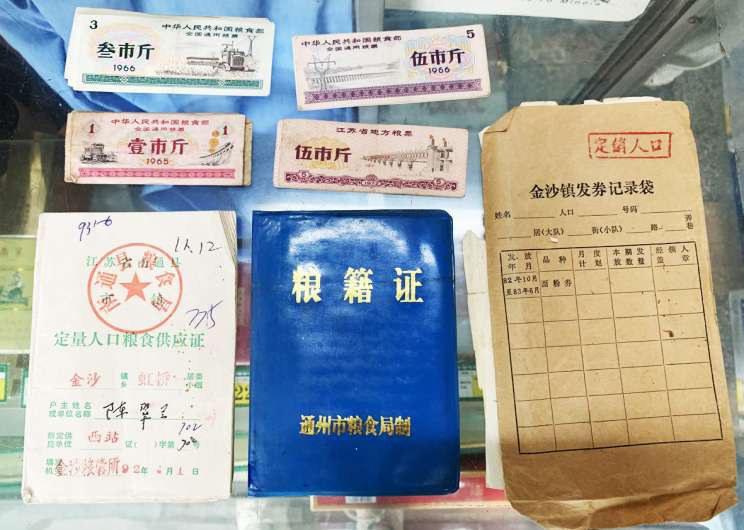 3
中华人民共和国粮食部
全国通用粮票
叁市斤
1966
中华人民共和国粮食部
全国通用粮票
5
伍市斤
1966
中华人民共和国粮食部
全国通用粮票
1
壹市斤
1
1965
江苏省地方粮票
伍市斤
5
5
931-6
11.12
江苏省南通县
定量人口粮食供应证
金沙
镇
乡
虹桥
居委
小组
户主姓名
或单位名称
陈翠兰
指定供
应单位
西站
证( )字第
号
702
填发
机关
金沙粮管所
92年
月1日
粮籍证
通州市粮食局制
定量人口
金沙镇发券记录袋
姓名
人口
号码
团(大队)
街(小队)
路
弄
巷
发放
年月
品种
月度
计划
本期发
放数量
经领人
盖章
82年10月
至83年6月
面粉券